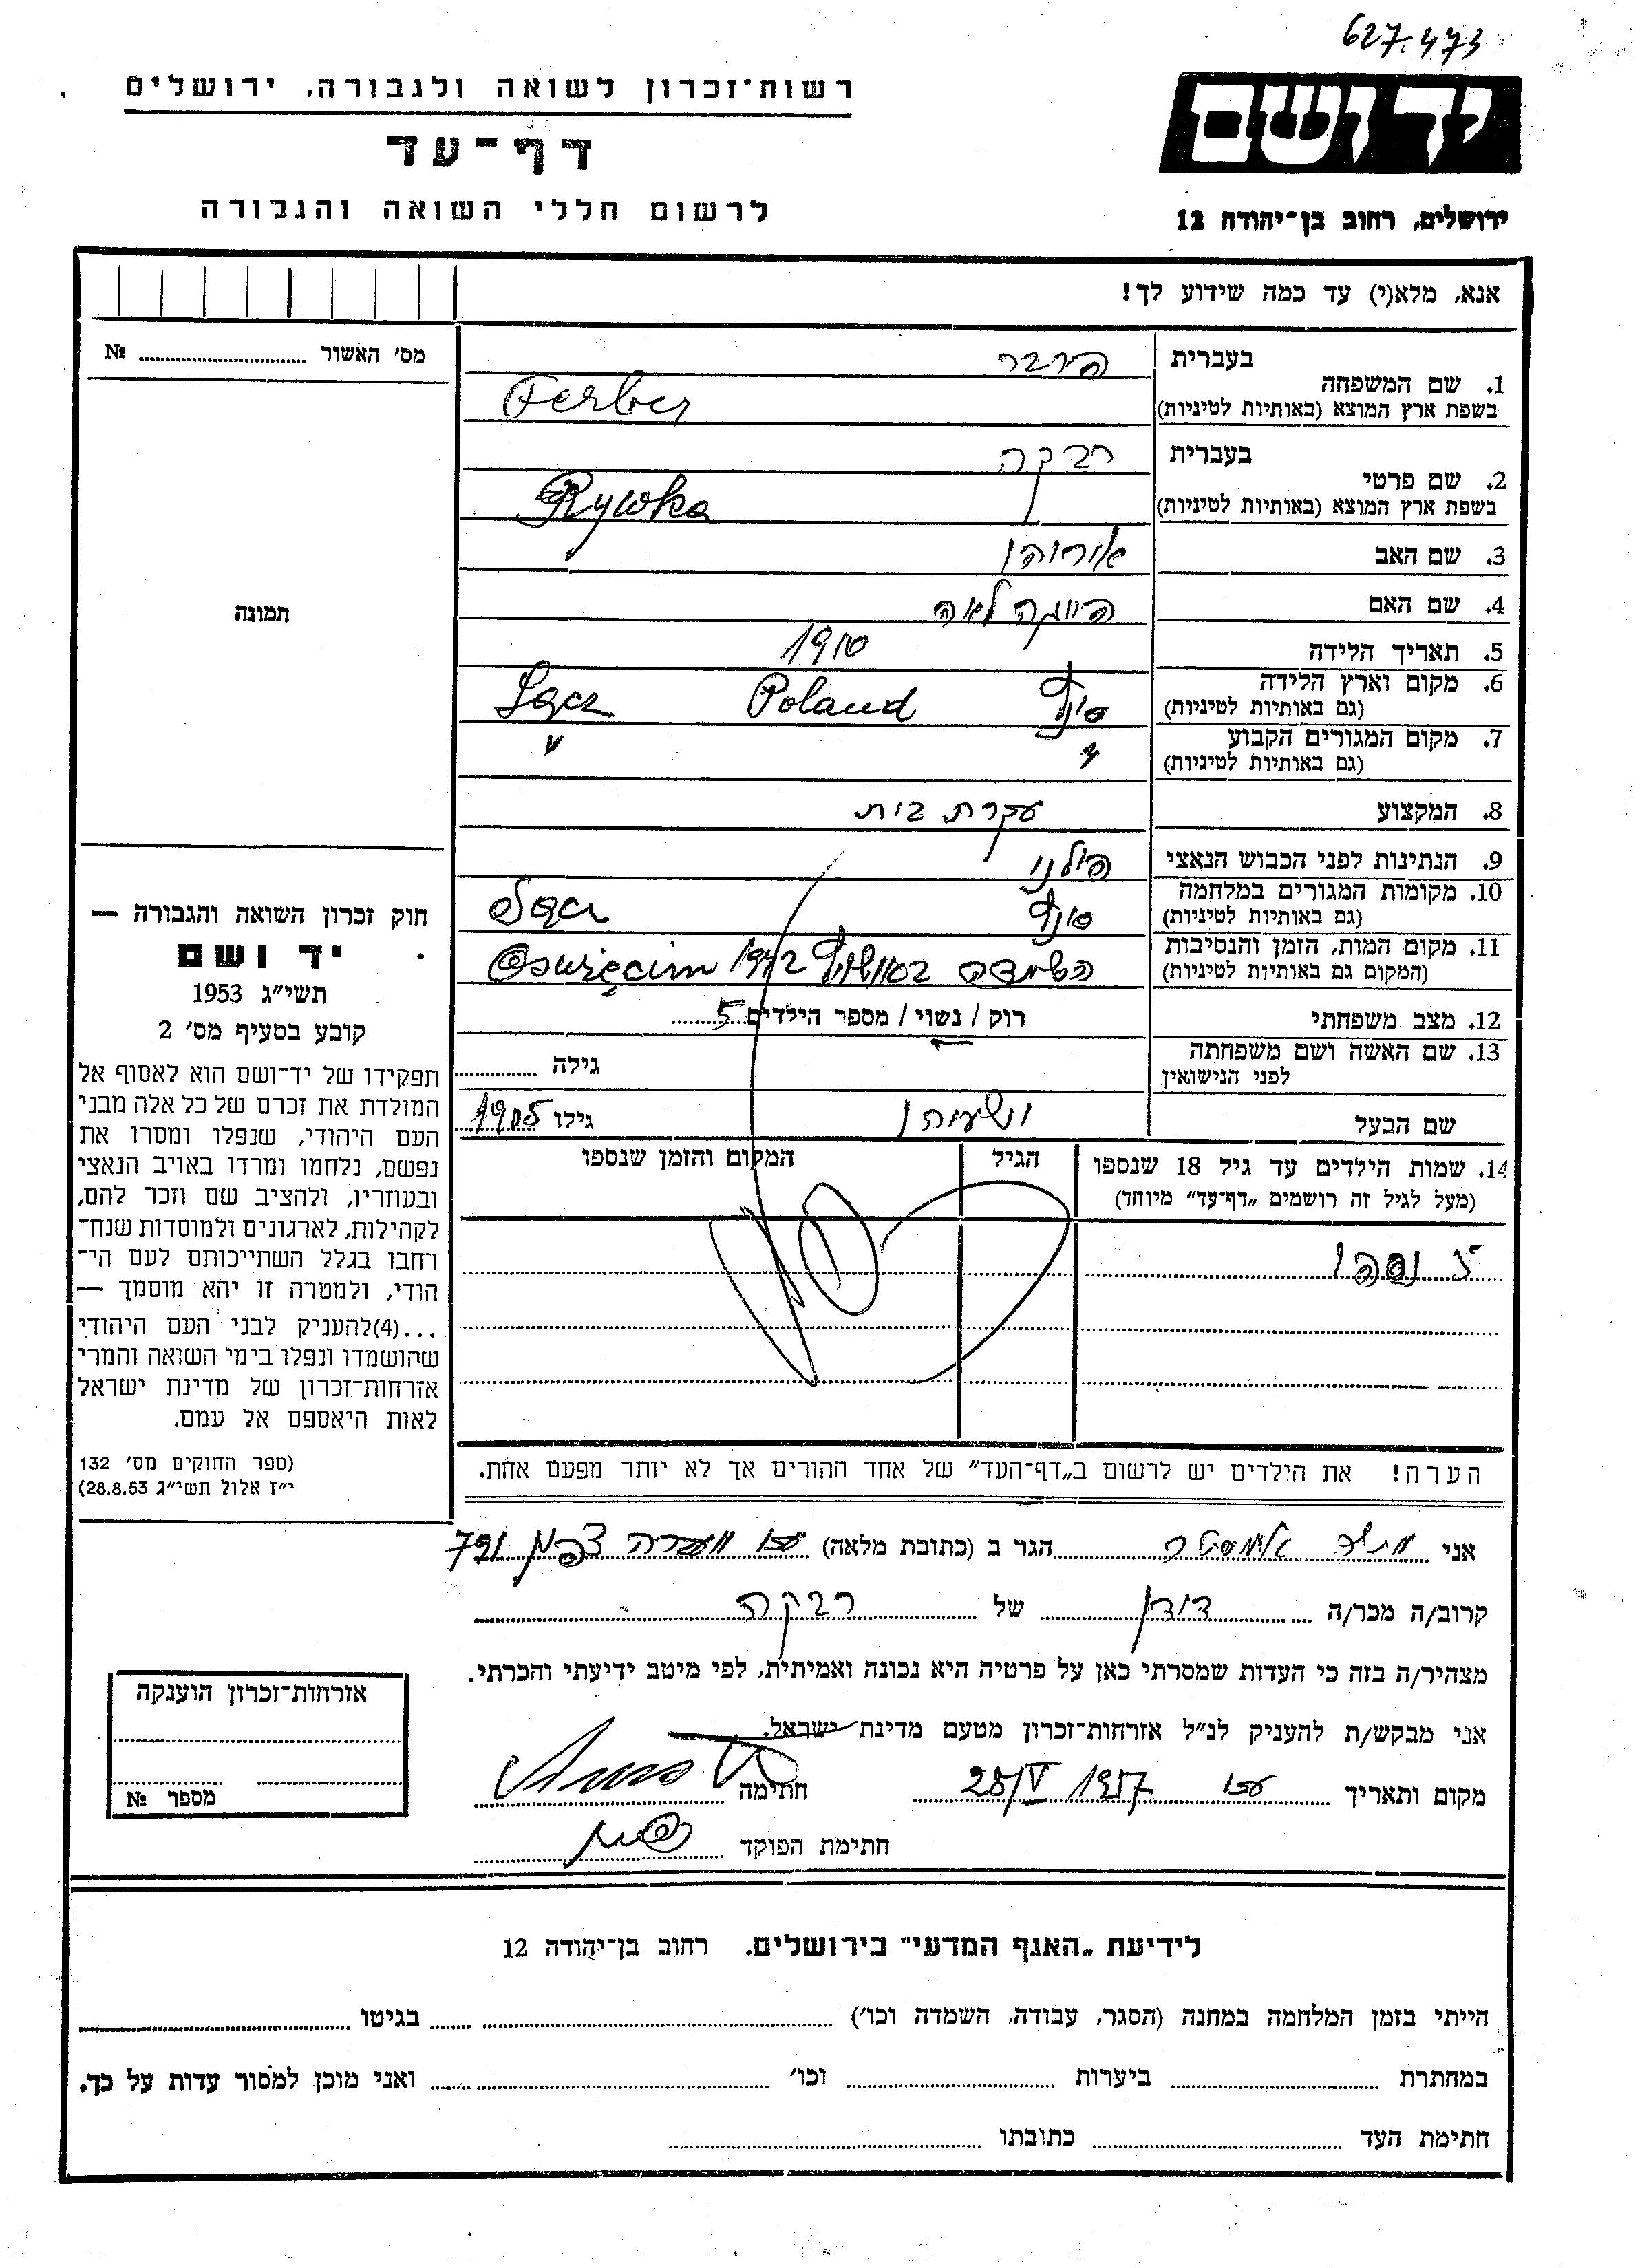 627.473
יד ושם
ירושלים, רחוב בן־יהודה 12
רשות־זכרון לשואה ולגבורה, ירושלים
דף־עד
לרשום חללי השואה והגבורה
אנא, מלא(י) עד כמה שידוע לך!
מס׳ האשור № ........
תמונה
חוק זכרון השואה והגבורה —
יד ושם
תשי״ג 1953
קובע בסעיף מס׳ 2
תפקידו של יד־ושם הוא לאסוף אל
המולדת את זכרם של כל אלה מבני
העם היהודי, שנפלו ומסרו את
נפשם, נלחמו ומרדו באויב הנאצי
ובעוזריו, ולהציב שם וזכר להם,
לקהילות, לארגונים ולמוסדות שנח־
רחבו בגלל השתייכותם לעם הי־
הודי, ולמטרה זו יהא מוסמך —
...(4)להעניק לבני העם היהודי
שהושמדו ונפלו בימי השואה והמרי
אזרחות־זכרון של מדינת ישראל
לאות היאספם אל עמם.
(ספר החוקים מס׳ 132
י״ז אלול תשי״ג 28.8.53)
בעברית פרבר
1. שם המשפחה
בשפת ארץ המוצא (באותיות לטיניות) Ferber
בעברית רבקה
2. שם פרטי
בשפת ארץ המוצא (באותיות לטיניות) Rywka
3. שם האב
4. שם האם לאה
5. תאריך הלידה 1910
6. מקום וארץ הלידה Poland Sącz
(גם באותיות לטיניות)
7. מקום המגורים הקבוע
(גם באותיות לטיניות)
8. המקצוע עקרת בית
9. הנתינות לפני הכבוש הנאצי פולני
10. מקומות המגורים במלחמה Sącz
(גם באותיות לטיניות)
11. מקום המות, הזמן והנסיבות הושמדה 1942 Oswięcim
(המקום גם באותיות לטיניות)
12. מצב משפחתי רוק / נשוי / מספר הילדים 5
13. שם האשה ושם משפחתה גילה ........
לפני הנישואין
שם הבעל גילו 1905
14. שמות הילדים עד גיל 18 שנספו הגיל המקום והזמן שנספו
(מעל לגיל זה רושמים „דף־עד״ מיוחד)
נספו
הערה! את הילדים יש לרשום ב„דף־העד״ של אחד ההורים אך לא יותר מפעם אחת.
אני הגר ב (כתובת מלאה) עכו 791
קרוב/ה מכר/ה דודן של רבקה
מצהיר/ה בזה כי העדות שמסרתי כאן על פרטיה היא נכונה ואמיתית, לפי מיטב ידיעתי והכרתי.
אני מבקש/ת להעניק לנ״ל אזרחות־זכרון מטעם מדינת ישראל.
מקום ותאריך עכו 28/V 1957 חתימה
חתימת הפוקד
אזרחות־זכרון הוענקה
מספר №
לידיעת „האגף המדעי״ בירושלים. רחוב בן־יהודה 12
הייתי בזמן המלחמה במחנה (הסגר, עבודה, השמדה וכו׳) ........ בגיטו ........
במחתרת ........ ביערות ........ וכו׳ ........ ואני מוכן למסור עדות על כך.
חתימת העד ........ כתובתו ........